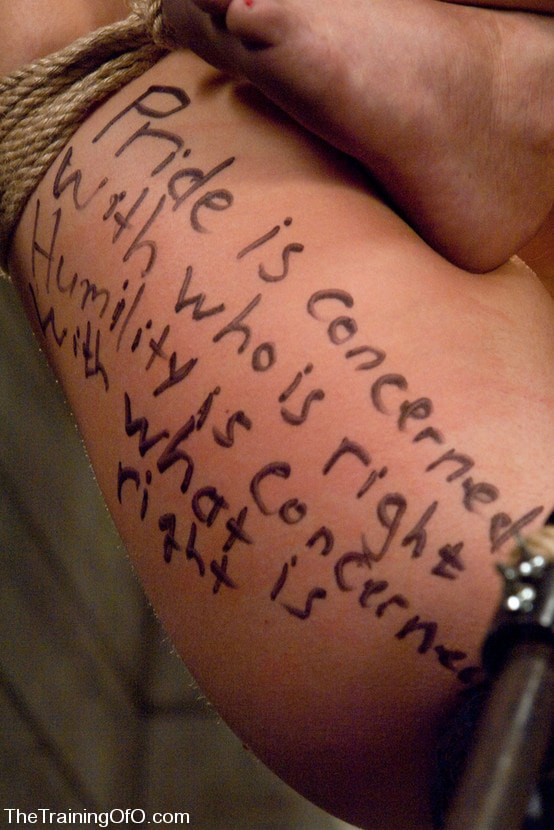 Pride is concerned
with who is right
Humility is concerned
with what is
right
TheTrainingOfO.com